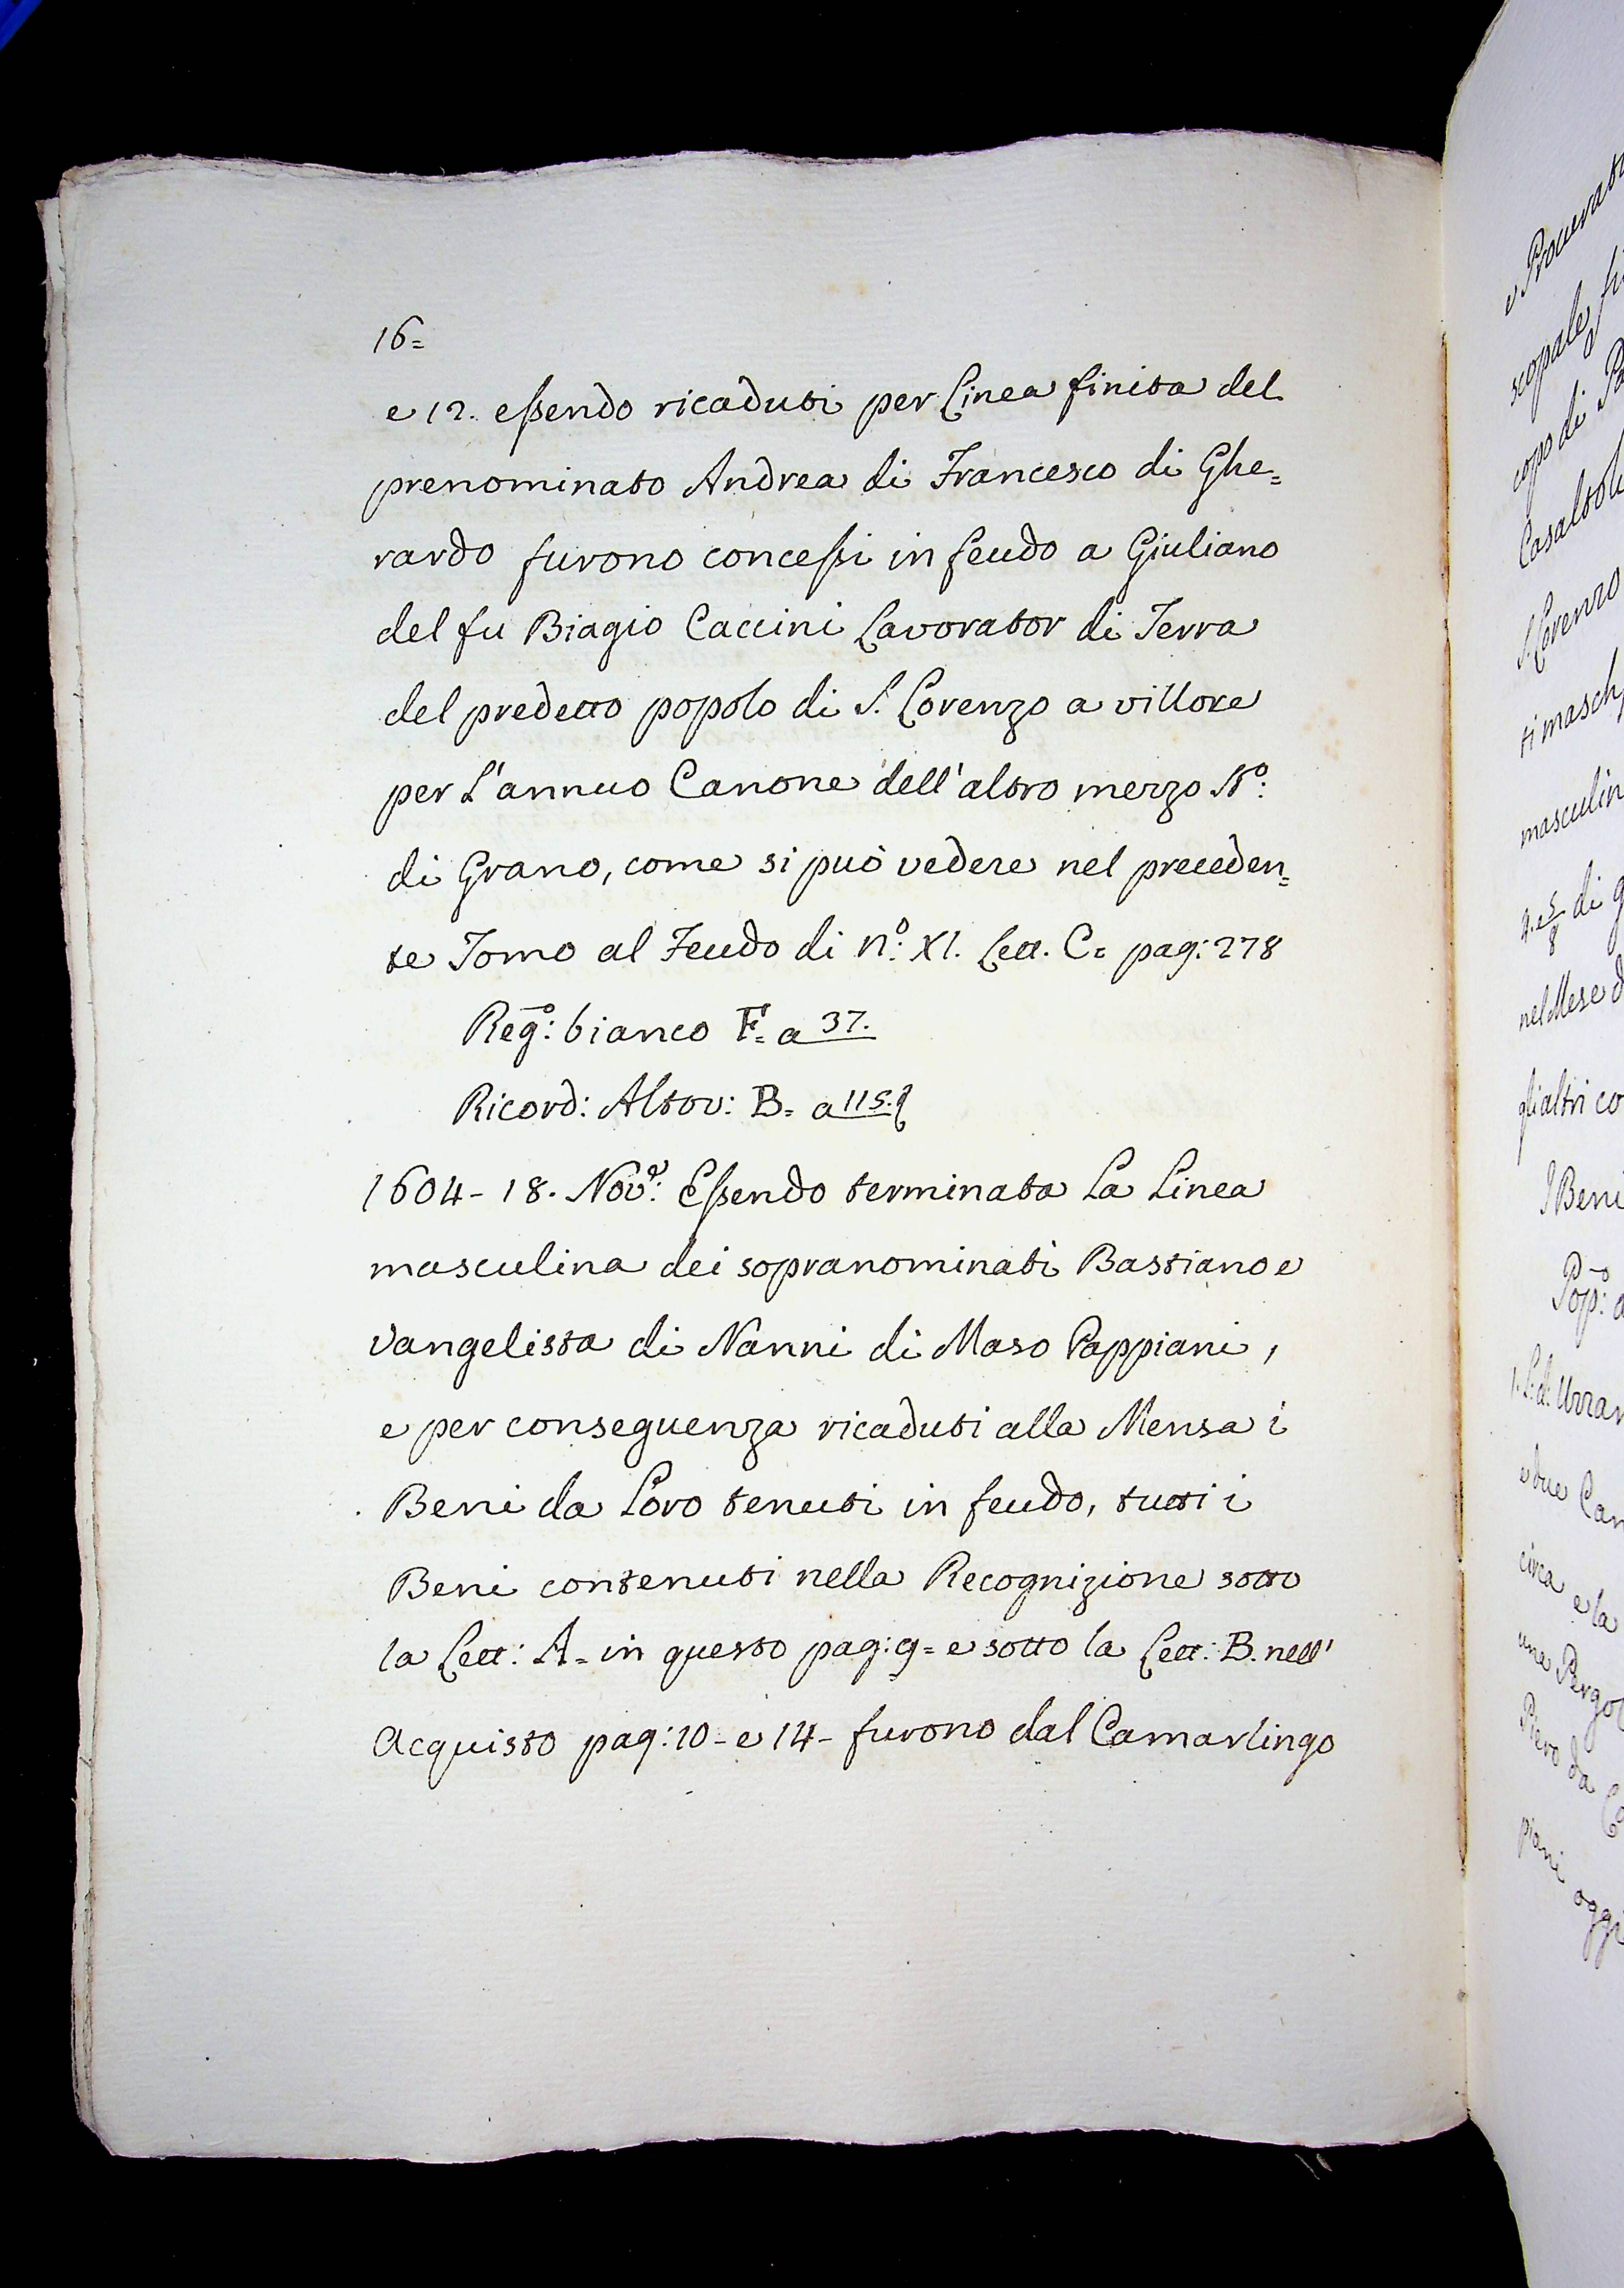 16=
e 12. essendo ricaduti per Linea finita del
prenominato Andrea di Francesco di Ghe=
rardo furono concessi in feudo a Giuliano
del fu Biagio Caccini Lavorator di Terra
del predetto popolo di S. Lorenzo a villore
per L'annuo Canone dell'altro mezzo St.º:
di Grano, come si può vedere nel preceden=
te Tomo al Feudo di N.º: XI. Lett. C= pag: 278
Reg.º: bianco F= a 37.
Ricord: Altov: B= a 115.
1604- 18. Nov.e: Essendo terminata La Linea
masculina dei sopranominati Bastiano e
Vangelista di Nanni di Maso Pappiani,
e per conseguenza ricaduti alla Mensa i
Beni da Loro tenuti in feudo, tutti i
Beni contenuti nella Recognizione sotto
la Lett: A= in questo pag: 9= e sotto la Lett: B. nell'
Acquisto pag: 10- e 14- furono dal Camarlingo
scopale
copo di
S. Lorenzo
ti masch
masculin
4. e 5/8 di g
nel Mese d
gli altri co
I Beni
Pop.º: a
e due Cam
circa e la
une Pergo
Piero da C
piani oggi